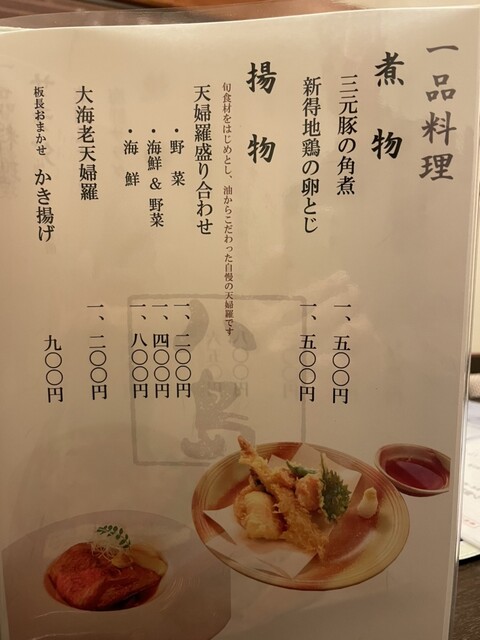 一品料理
煮物
三元豚の角煮 一、五〇〇円
新得地鶏の卵とじ 一、五〇〇円
揚物
旬食材をはじめとし、油からこだわった自慢の天婦羅です
天婦羅盛り合わせ
・野菜 一、二〇〇円
・海鮮&野菜 一、四〇〇円
・海鮮 一、八〇〇円
大海老天婦羅 一、二〇〇円
板長おまかせ かき揚げ 九〇〇円